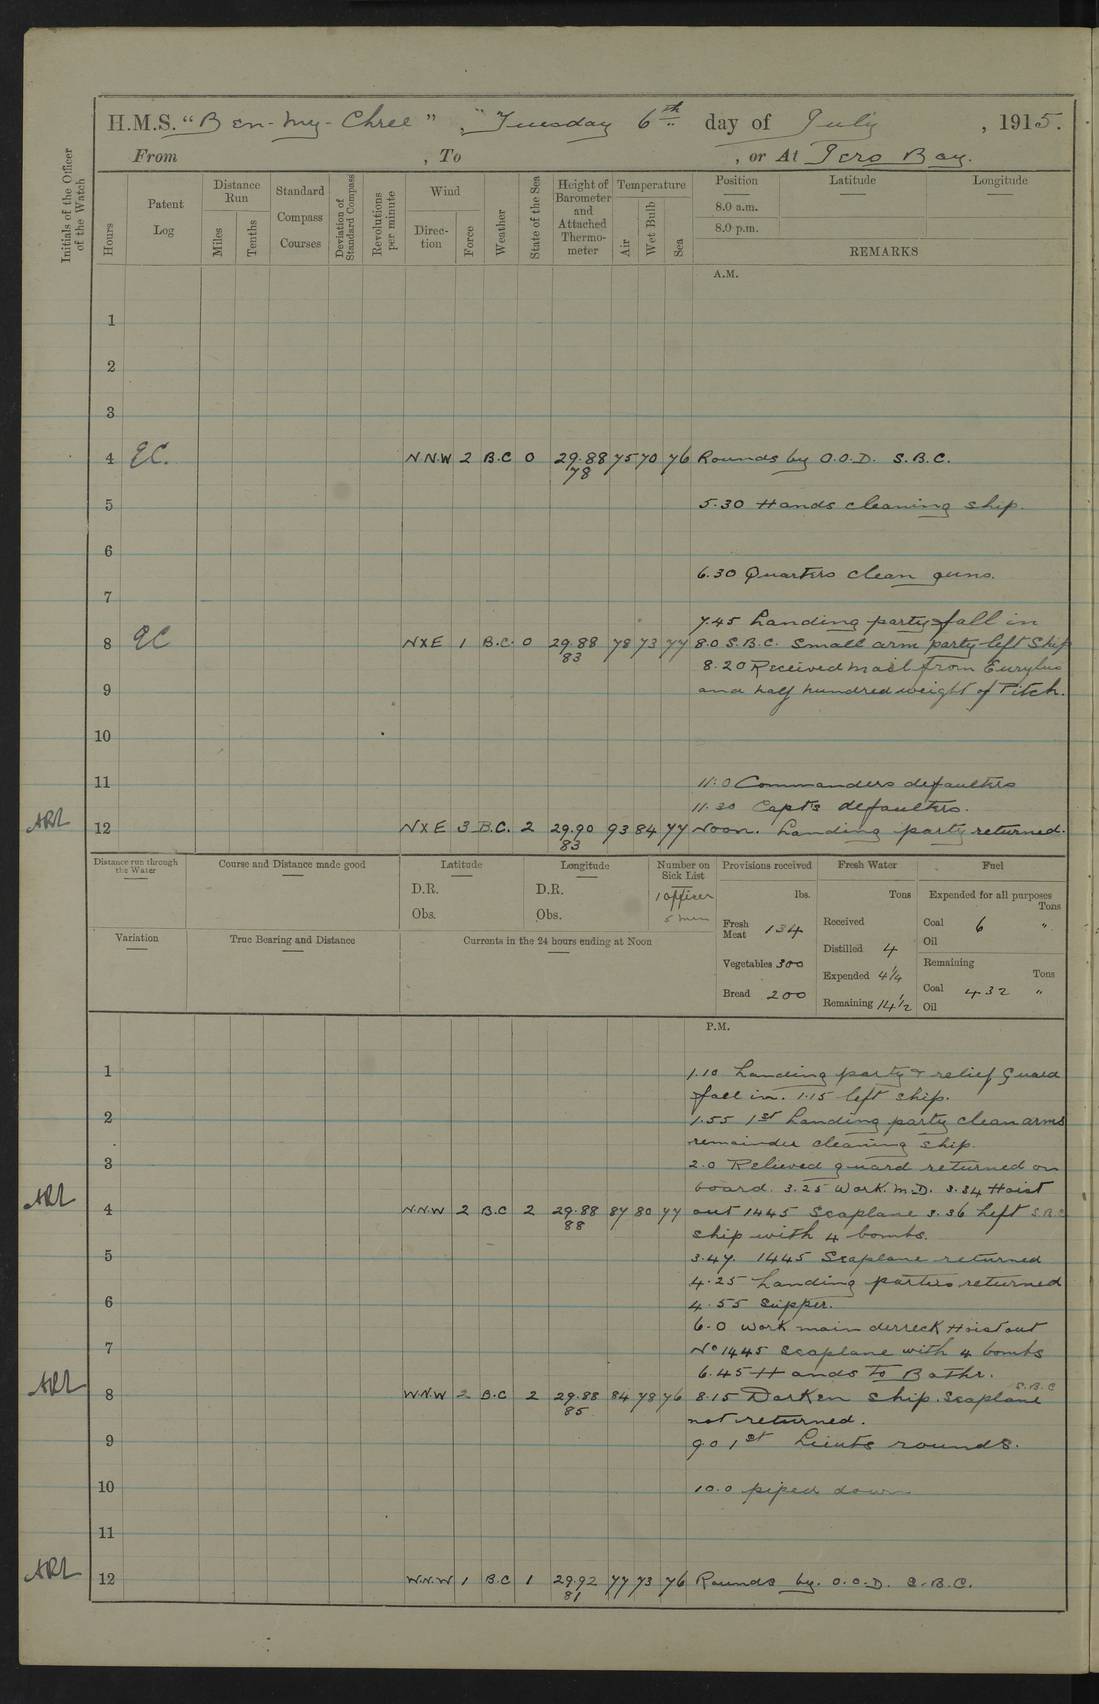 H.M.S. "Ben-my-Chree", Tuesday 6th day of July, 1915.
From , To , or At Iero Bay.
Initials of the Officer of the Watch
Hours
Patent Log
Distance Run
Miles
Tenths
Standard Compass Courses
Deviation of Standard Compass
Revolutions per minute
Wind
Direction
Force
Weather
State of the Sea
Height of Barometer and Attached Thermometer
Temperature
Air
Wet Bulb
Sea
Position
Latitude
Longitude
8.0 a.m.
8.0 p.m.
REMARKS
A.M.
1
2
3
4 EC. N N.W 2 B.C 0 29.88 75 70 76 Rounds by O.O.D. S.B.C.
78
5 5.30 Hands cleaning ship.
6
6.30 Quarters clean guns.
7
7.45 Landing party fall in
8 EC NXE 1 B.C. 0 29.88 78 73 77 8.0 S.B.C. Small arm party left Ship
83
8.20 Received mail from Eurylus
9 and half hundred weight of Pitch.
10
11 11.0 Commanders defaulters
11.30 Capt's defaulters.
ARL 12 NXE 3 B.C. 2 29.90 93 84 77 Noon. Landing party returned.
83
Distance run through the Water
Course and Distance made good
Latitude
D.R.
Obs.
Longitude
D.R.
Obs.
Number on Sick List
1 officer
5 men
Provisions received
lbs.
Fresh Meat 134
Vegetables 300
Bread 200
Fresh Water
Tons
Received
Distilled 4
Expended 4 1/4
Remaining 14 1/2
Fuel
Expended for all purposes
Tons
Coal 6 "
Oil
Remaining
Tons
Coal 432 "
Oil
Variation
True Bearing and Distance
Currents in the 24 hours ending at Noon
P.M.
1 1.10 Landing party & relief Guard
fall in. 1.15 left ship.
2 1.55 1st Landing party clean arms
remainder cleaning ship.
3 2.0 Relieved guard returned on
board. 3.25 Work. M.D. 3.34 Hoist
ARL 4 N.N.W 2 B.C 2 29.88 87 80 77 out 1445 Seaplane 3.36 Left S.B.C
88
ship with 4 bombs.
5 3.47. 1445 Seaplane returned
4.25 Landing parties returned
6 4.55 Supper.
6.0 Work main derrick Hoist out
7 No 1445 Seaplane with 4 bombs
6.45 Hands to Bathe.
S.B.C
ARL 8 W.N.W 2 B.C 2 29.88 84 78 76 8.15 Darken ship. Seaplane
85
not returned.
9 9.0 1st Lieuts rounds.
10 10.0 piped down
11
ARL 12 W.N.W 1 B.C 1 29.92 77 73 76 Rounds by. O.O.D. S.B.C.
81